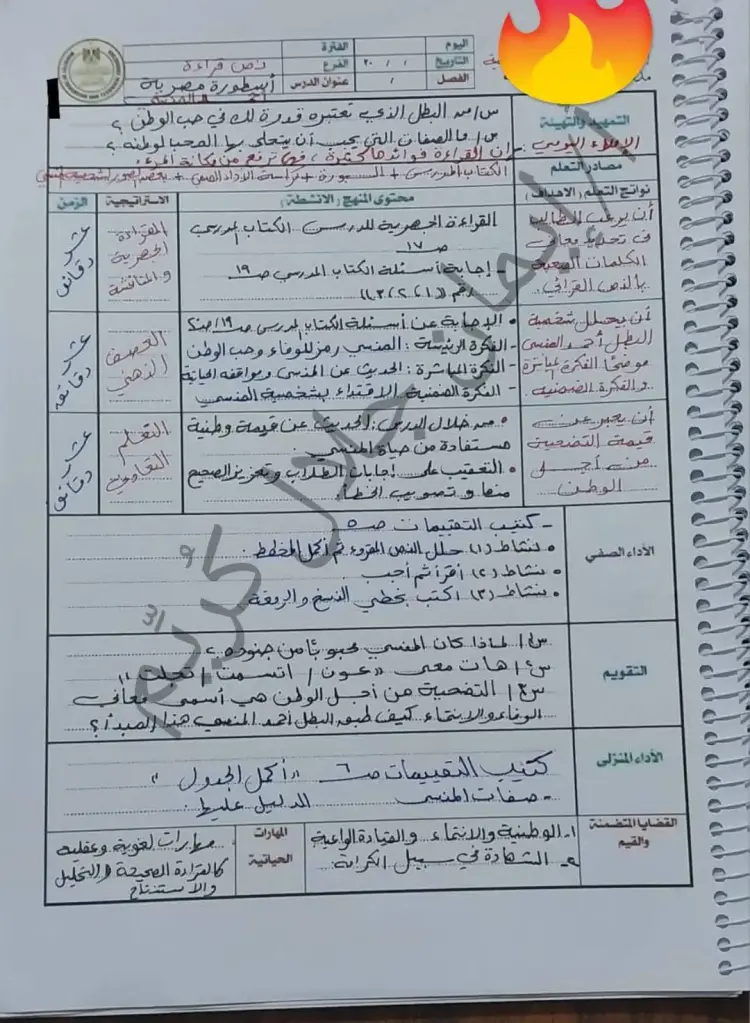 اليوم
الفترة
التاريخ / / ٢٠
الفرع نص قراءة
الفصل /
عنوان الدرس أسطورة مصرية
أحمد المنسي
التمهيد والتهيئة
س/ من البطل الذي تعتبره قدوة لك في حب الوطن ؟
س/ ما الصفات التي يجب أن يتحلى بها المحب لوطنه ؟
الإملاء اليومي : إن القراءة فوائدها كثيرة ، فهي ترفع من مكانة المرء.
مصادر التعلم
الكتاب المدرسي + السبورة + كراسة الأداء الصفي + بعض الصور لشخصية المنسي
نواتج التعلم (الاهداف)
محتوى المنهج (الانشطة)
الاستراتيجية
الزمن
أن يرغب الطالب
في تحديد معاني
الكلمات الصعبة
بالنص القرائي.
القراءة الجهرية للدرس الكتاب المدرسي
ص ١٧
- إجابة أسئلة الكتاب المدرسي ص ١٩
رقم (( ١، ٢، ٣ ))
القراءة
الجهرية
والمناقشة
عشر دقائق
أن يحلل شخصية
البطل أحمد المنسي
موضحًا الفكرة المباشرة
والفكرة الضمنية
• الإجابة عن أسئلة الكتاب المدرسي ص ١٩/ ص٢٠
- الفكرة الرئيسة : المنسي رمز للوفاء وحب الوطن
- الفكرة المباشرة : الحديث عن المنسي ومواقفه الحياتية
- الفكرة الضمنية الاقتداء بشخصية المنسي
العصف
الذهني
عشر دقائق
أن يعبر عن
قيمة التضحية
من أجل
الوطن
• من خلال الدرس : الحديث عن قيمة وطنية
مستفادة من حياة المنسي
• التعقيب على إجابات الطلاب وتعزيز الصحيح
منها وتصويب الخطأ.
التعلم
التعاوني
عشر دقائق
الأداء الصفي
- كتيب التقييمات ص ٥
• نشاط (١) حلل النص المقروء ثم أكمل المخطط .
• نشاط (٢) اقرأ ثم أجب
• نشاط (٣) اكتب بخطي النسخ والرقعة.
التقويم
س١/ لماذا كان المنسي محبوبًا من جنوده ؟
س٢/ هات معنى (( عون / اتسمت / تجلت ))
س٣/ التضحية من أجل الوطن هي أسمى معاني
الوفاء والانتماء كيف طبق البطل أحمد المنسي هذا المبدأ ؟
الأداء المنزلى
كتيب التقييمات ص ٦ (( أكمل الجدول ))
- صفات المنسي الدليل عليها .
القضايا المتضمنة والقيم
١- الوطنية والانتماء والقيادة الواعية
٢- الشهادة في سبيل الكرامة.
المهارات الحياتية
مهارات لغوية وعقلية
كالقراءة الصحيحة والتحليل
والاستنتاج
إيمان جلال كُريّم